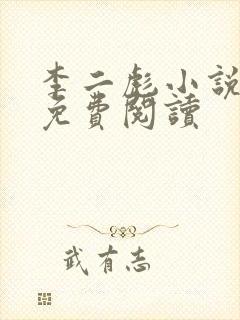 李二彪小說
免費閱讀
武有志